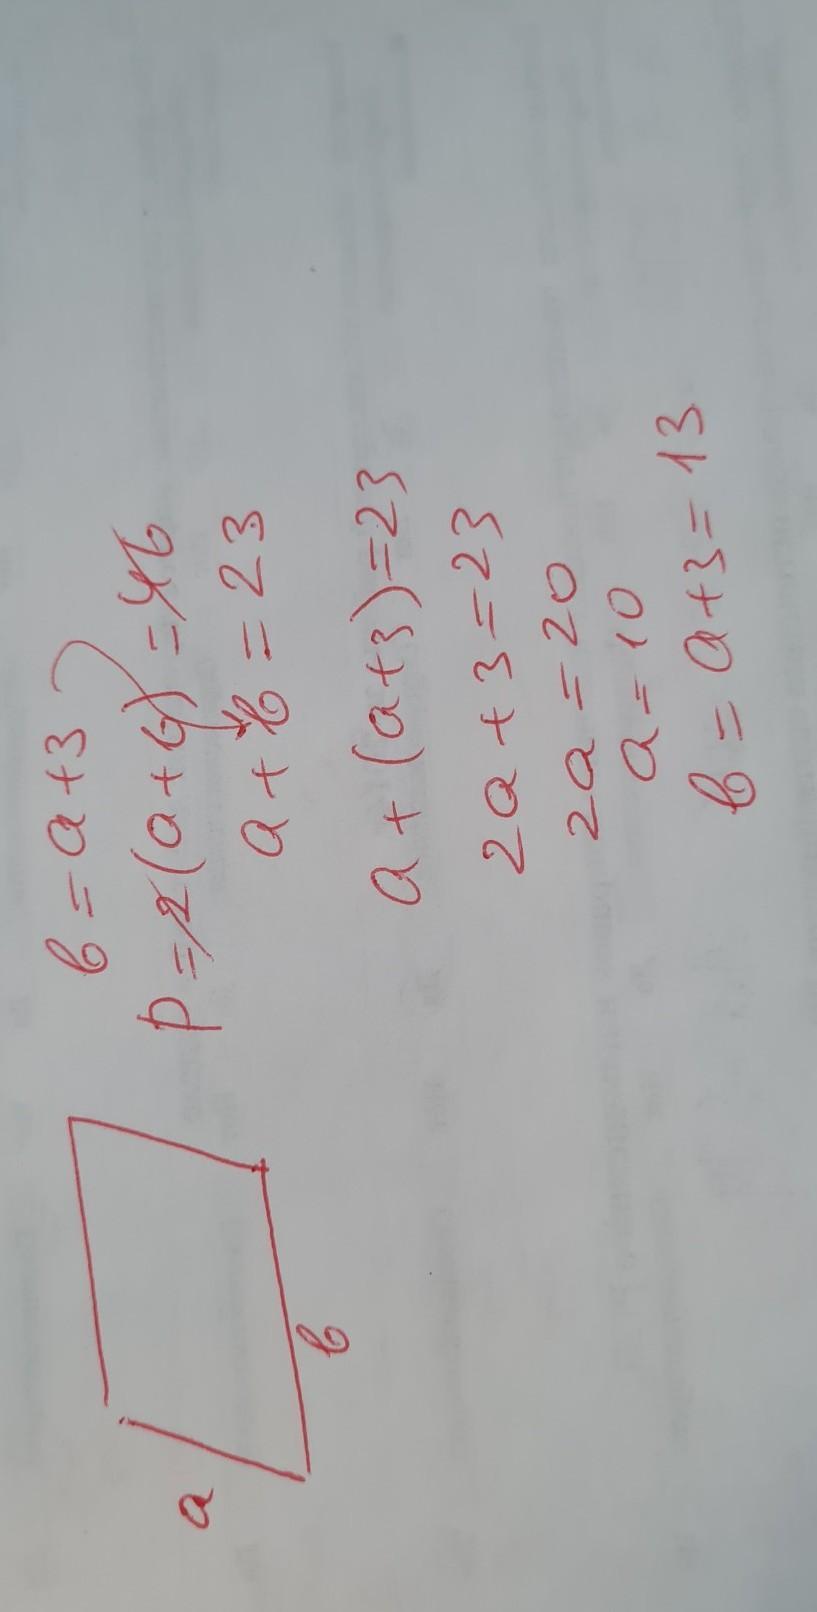 b = a+3
P = 2(a+b) = 46
a + b = 23
a + (a+3) = 23
2a + 3 = 23
2a = 20
a = 10
b = a+3 = 13
a
b